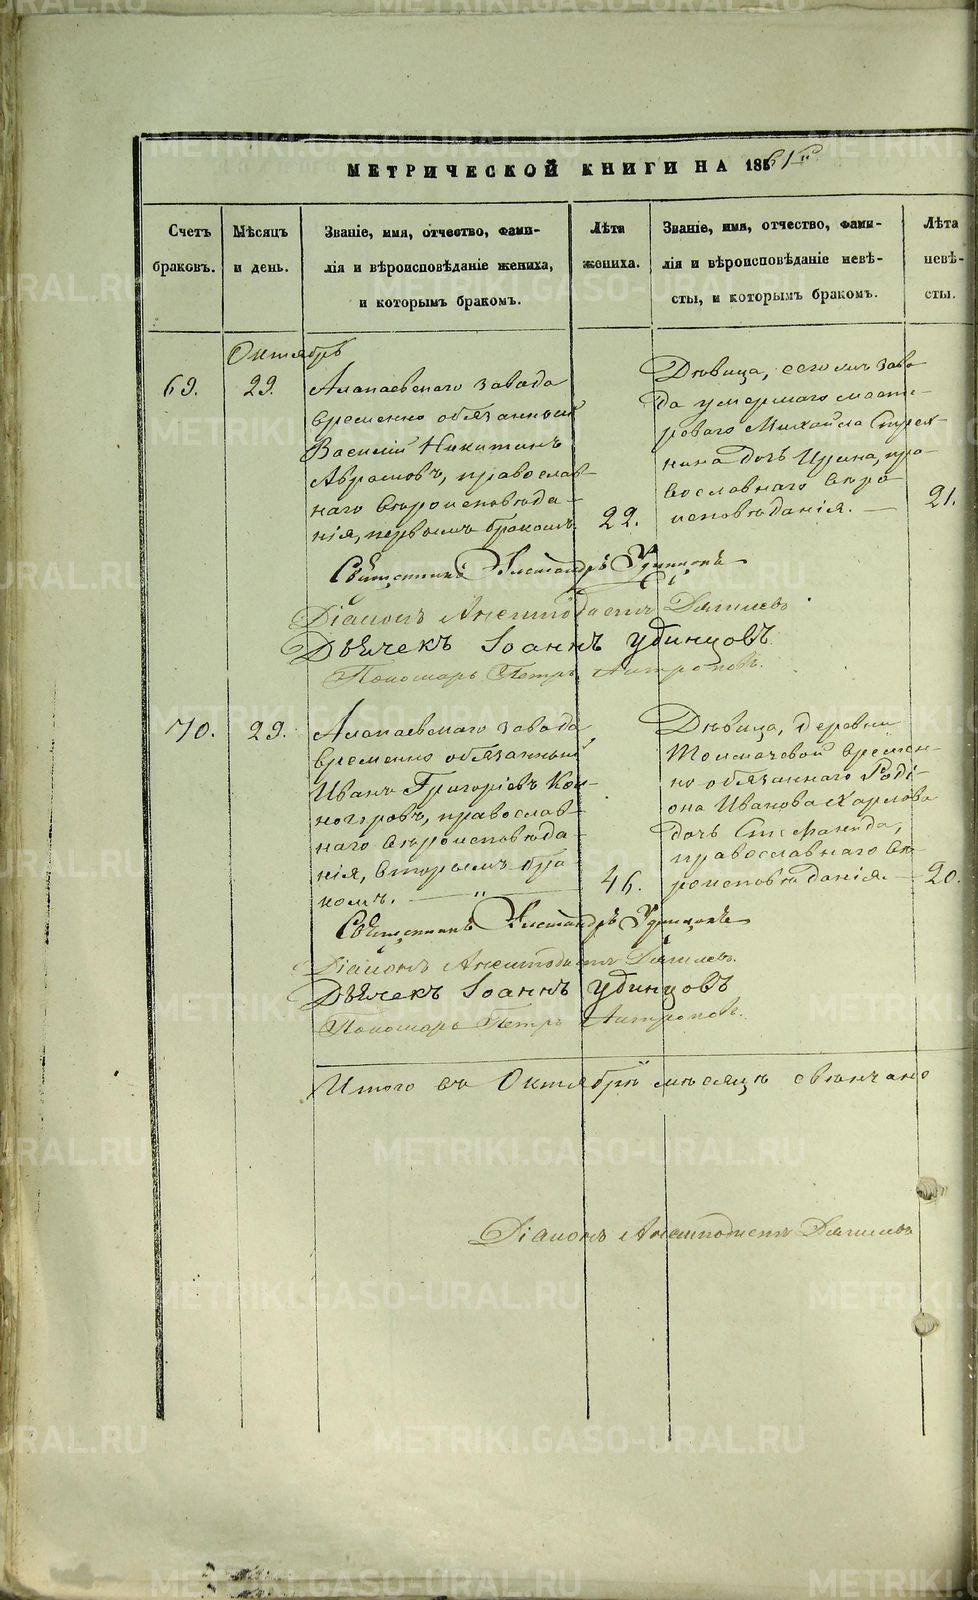 МЕТРИЧЕСКОЙ КНИГИ НА 1861й
Счетъ браковъ.
Мѣсяцъ и день.
Званіе, имя, отчество, фами-
лія и вѣроисповѣданіе жениха,
и которымъ бракомъ.
Лѣта жениха.
Званіе, имя, отчество, фами-
лія и вѣроисповѣданіе невѣ-
сты, и которымъ бракомъ.
Лѣта невѣ-
сты.
Октябрь
69.
29.
Алапаевскаго завода
временно обязанный
Василій Никитинъ
Абрамовъ, православ-
наго вѣроисповѣда-
нія, первымъ бракомъ.
22.
Дѣвица, того же заво
да умершаго масте-
роваго Михайла
дочь Ирина, пра-
вославнаго вѣро
исповѣданія. —
21.
Священникъ Александръ Удинцовъ
Діаконъ Анемподистъ Дягилевъ
Дьячекъ Іоаннъ Удинцовъ
Пономарь Петръ Антроповъ.
70.
29.
Алапаевскаго завода
временно обязанный
Иванъ Григорьевъ Кон-
ногоровъ, православ-
наго вѣроисповѣда-
нія, вторымъ бра-
комъ. — " —
46.
Дѣвица, деревни
Толмачевой времен-
но обязаннаго Роді-
она Иванова Карпова
дочь Степанида,
православнаго вѣ-
роисповѣданія. —
20.
Священникъ Александръ Удинцовъ
Діаконъ Анемподистъ Дягилевъ.
Дьячекъ Іоаннъ Удинцовъ
Пономарь Петръ Антроповъ.
Итого въ Октябрѣ мѣсяцѣ свѣнчано
Діаконъ Анемподистъ Дягилевъ
METRIKI.GASO-URAL.RU